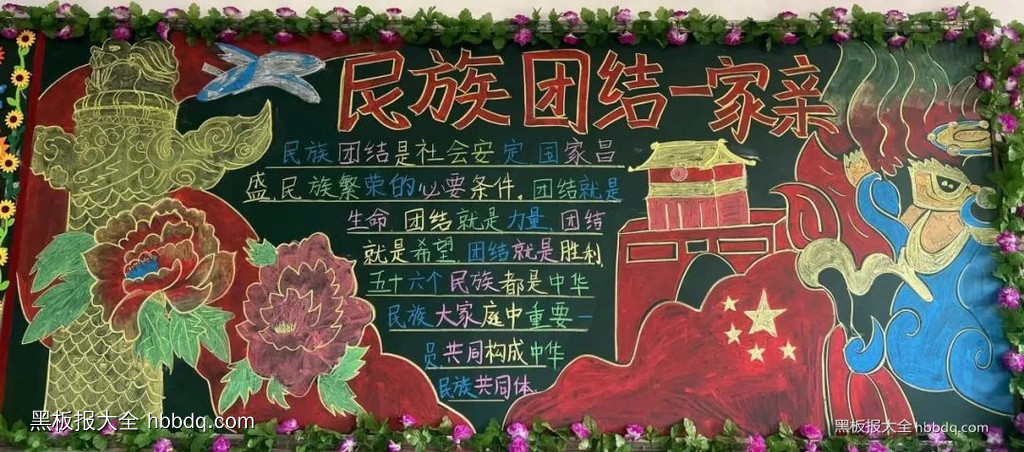 民族团结一家亲
民族团结是社会安定国家昌
盛.民族繁荣的必要条件,团结就是
生命,团结就是力量,团结
就是希望,团结就是胜利,
五十六个民族都是中华
民族大家庭中重要一
员,共同构成中华
民族共同体.
黑板报大全 hbbdq.com
黑板报大全 hbbdq.com